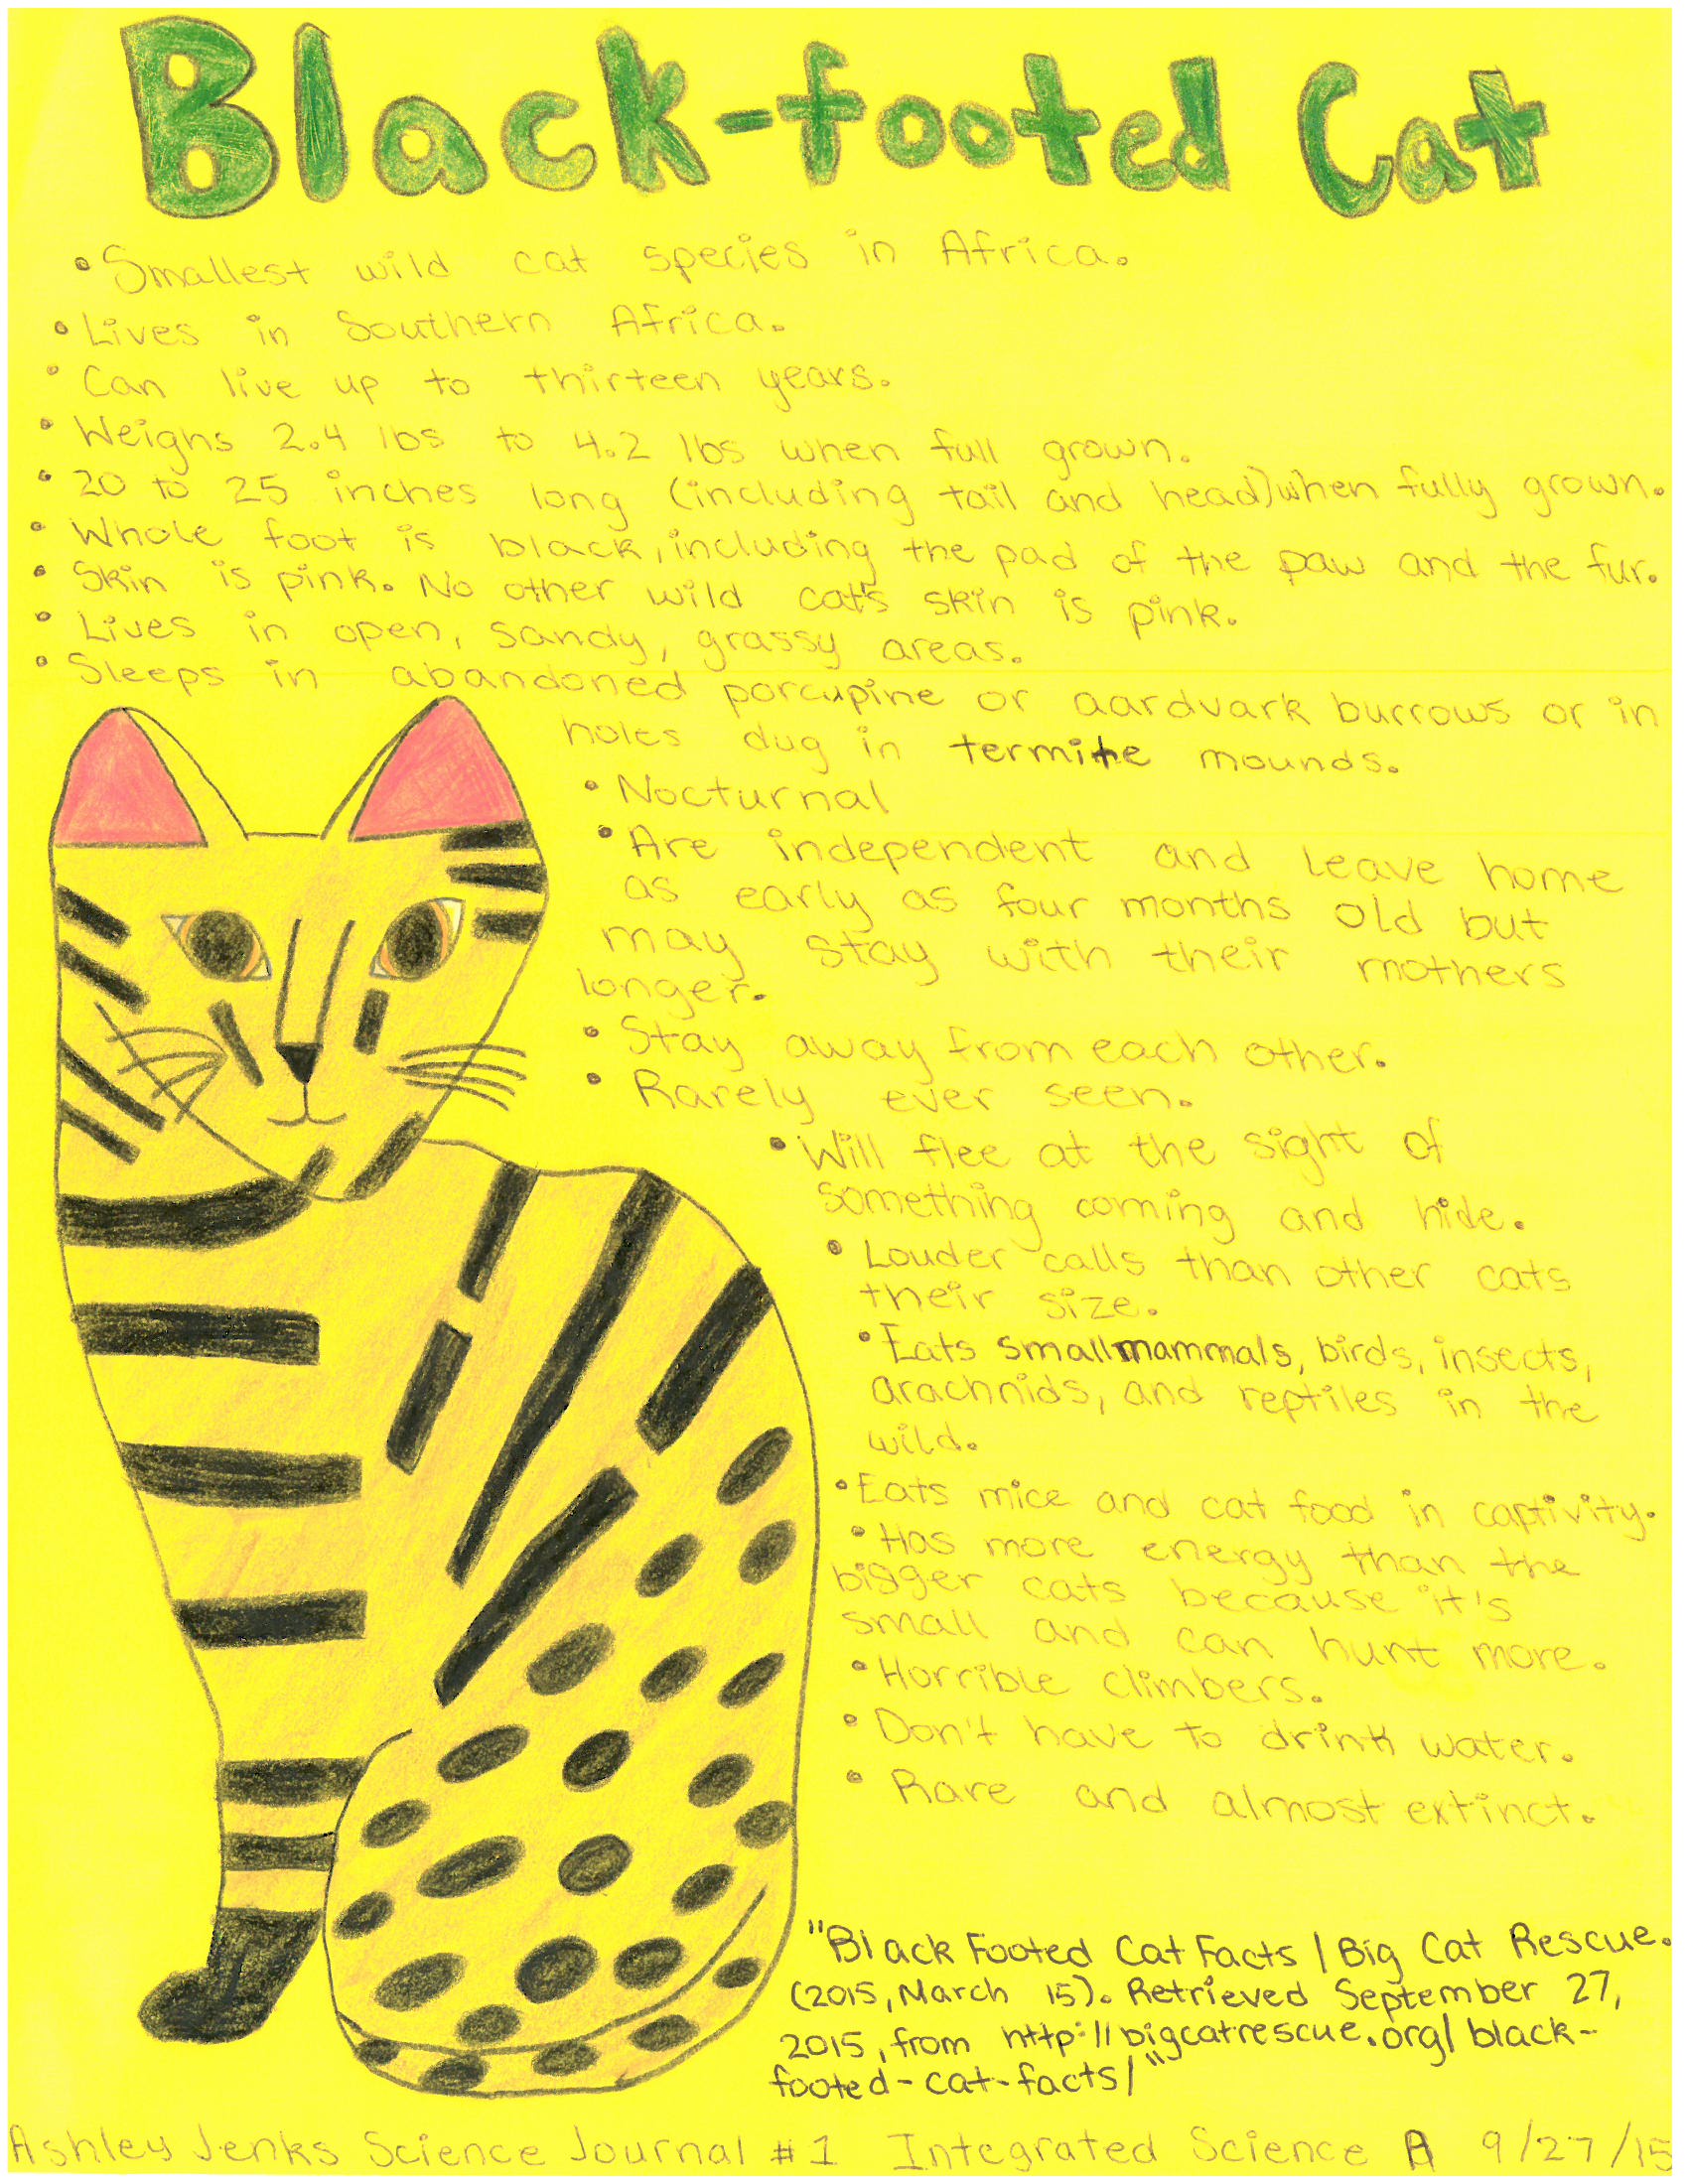 Black-footed Cat
• Smallest wild cat species in Africa.
• Lives in Southern Africa.
• Can live up to thirteen years.
• Weighs 2.4 lbs to 4.2 lbs when full grown.
• 20 to 25 inches long (including tail and head) when fully grown.
• Whole foot is black, including the pad of the paw and the fur.
• Skin is pink. No other wild cat's skin is pink.
• Lives in open, sandy, grassy areas.
• Sleeps in abandoned porcupine or aardvark burrows or in
holes dug in termite mounds.
• Nocturnal
• Are independent and leave home
as early as four months old but
may stay with their mothers
longer.
• Stay away from each other.
• Rarely ever seen.
• Will flee at the sight of
something coming and hide.
• Louder calls than other cats
their size.
• Eats small mammals, birds, insects,
arachnids, and reptiles in the
wild.
• Eats mice and cat food in captivity.
• Has more energy than the
bigger cats because it's
small and can hunt more.
• Horrible climbers.
• Don't have to drink water.
• Rare and almost extinct.
"Black Footed Cat Facts | Big Cat Rescue.
(2015, March 15). Retrieved September 27,
2015, from http://bigcatrescue.org/black-
footed-cat-facts/"
Ashley Jenks Science Journal #1 Integrated Science A 9/27/15